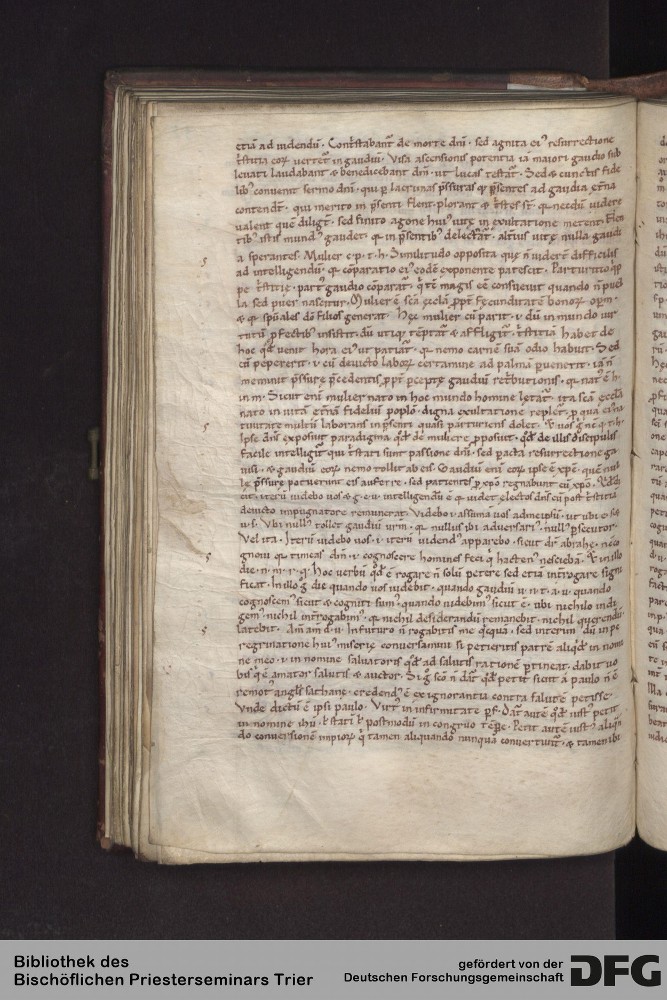 etiā ad uidendū. Contstabant de morte dni. sed agnita ei resurrectione
tstitia eoꝝ uertet in gaudiū. Visa ascensionis potentia iā maiori gaudio sub
leuati laudabant & benedicebant dm. ut lucas testat. Sed & cunctis fide
lib conuenit sermo dni. qui p lacrimas pssuras q psentes ad gaudia etna
contendt. qui merito in psenti flent. plorant & tstes st. q necdū uidere
ualent quē diligt. sed finito agone hui uitę in exultatione metent. Flen
tib istis mund gaudet. q in psentib delectat. alteri uitę nulla gaudi
a sperantes. Mulier c. p. t. h. Similitudo opposita quę n uideret difficilis
ad intelligendū. q cōparatio ei eodē exponente patescit. Parturitio qp
pe tstitię. part gaudio cōparat. q tē magis eē consueuit quando n puel
la sed puer nascitur. Mulierē scā ęcclā ppt fęcunditatē bonoꝝ opm.
& q spuales dō filios generat. Hęc mulier cū parit. v dū in mundo uir
tutū pfectib insistit. dū utiq teptat & affligit. tstitiā habet de
hoc qd uenit hora ei ut patiat. q nemo carnē suā odio habuit. Sed
cū pepererit. v cū deuicto laboꝝ certamine ad palmā puenerit. iā n
meminit pssurę pcedentis ppt pceptę gaudiū retbutionis. q nat ē h.
in m. Sicut eni mulier nato in hoc mundo homine lętat. ita scā ęcclā
nato in uitā etnā fideliū poplo. digna exultatione replet. p qua ei na
tiuitate multū laborans in psenti quasi parturiens dolet. & uos g n q. t. h.
Ipse dns exposuit paradigma qd de muliere pposuit. qd de illis discipulis
facile intelligit qui tstati sunt passione dni. sed pacta resurrectione ga
uisi. & gaudiū eoꝝ nemo tollit ab eis. Gaudiū eni eoꝝ ipse ē xps. quē nul
lę pssurę potuerunt eis auferre. sed patientes p xpo regnabunt cū xpo.
cit. iterū uidebo uos & g. c. u. intelligendū ē q uidet electos dns cū post tstitiā
deuicto impugnatore remunerat. Videbo. i. assumā uos ad meipsū. ut ubi e. s. &
u. s. Vbi null tollet gaudiū urm. q nullus ibi aduersari. null psecutor.
Vel ita. Iterū uidebo uos. i. iterū uidend apparebo. sicut dr abrahę. nc co
gnoui q timeas dm. v. cognoscere homines feci q hacten nesciebā. & in illo
die. n. m. r. q. Hoc uerbū qd ē rogare n solū petere sed etiā intrrogare signi
ficat. In illo g die quando uos uidebit. quando gaudiū u. n. t. a. u. quando
cognoscem sicut & cogniti sum. quando uidebim sicut ē. ubi nichilo indi
gem. nichil intrrogabim. q nichil desiderandū remanebit. nichil querendū
latebit. Am am d. u. In futuro n rogabitis me qcqua. sed interim dū in pe
regrinatione hui miserię conuersamini si petieritis patrē aliqd in nomi
ne meo. v in nomine saluatoris qd ad salutis rationē ptineat. dabit uo
bis q ē amator salutis & auctor. Si g scō n dat qd petit sicut a paulo n ē
remot angls sathanę. credend ē ex ignorantia contra salutē petisse.
Vnde dictū ē ipsi paulo. Virt in infirmitate pf. Dat autē qd iust petit
in nomine ihu. l stati l postmodū in congruo tēpre. Petit autē iust aliqn
do conuersionē impioꝝ q tamen aliquando nunquā conuertunt. & tamen ibi
Bibliothek des
Bischöflichen Priesterseminars Trier
gefördert von der
Deutschen Forschungsgemeinschaft
DFG